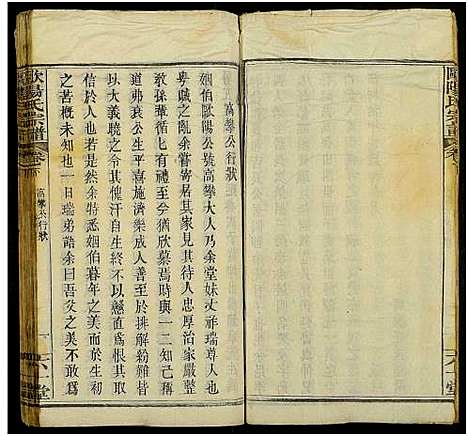 歐陽氏宗譜
卷
高攀公行狀
姻伯歐陽公號高攀大人乃余堂妹丈祥瑞尊人也
粵賊之亂余嘗寄居其家見其待人忠厚治家嚴整
敎孫葷循七有禮今猶欣慕焉時與一二知己稱
道弗衰公生平喜施濟樂成人善至於排解紛難皆
以大義曉之何其愧汗自生終以懸直爲恨其取
法乎上有如此余特悉姻伯暮年之美而於前此
之苦概未知也一日瑞弟語余曰吾父之美不敢爲
歐陽氏宗譜
卷
高攀公行狀
一
六一堂